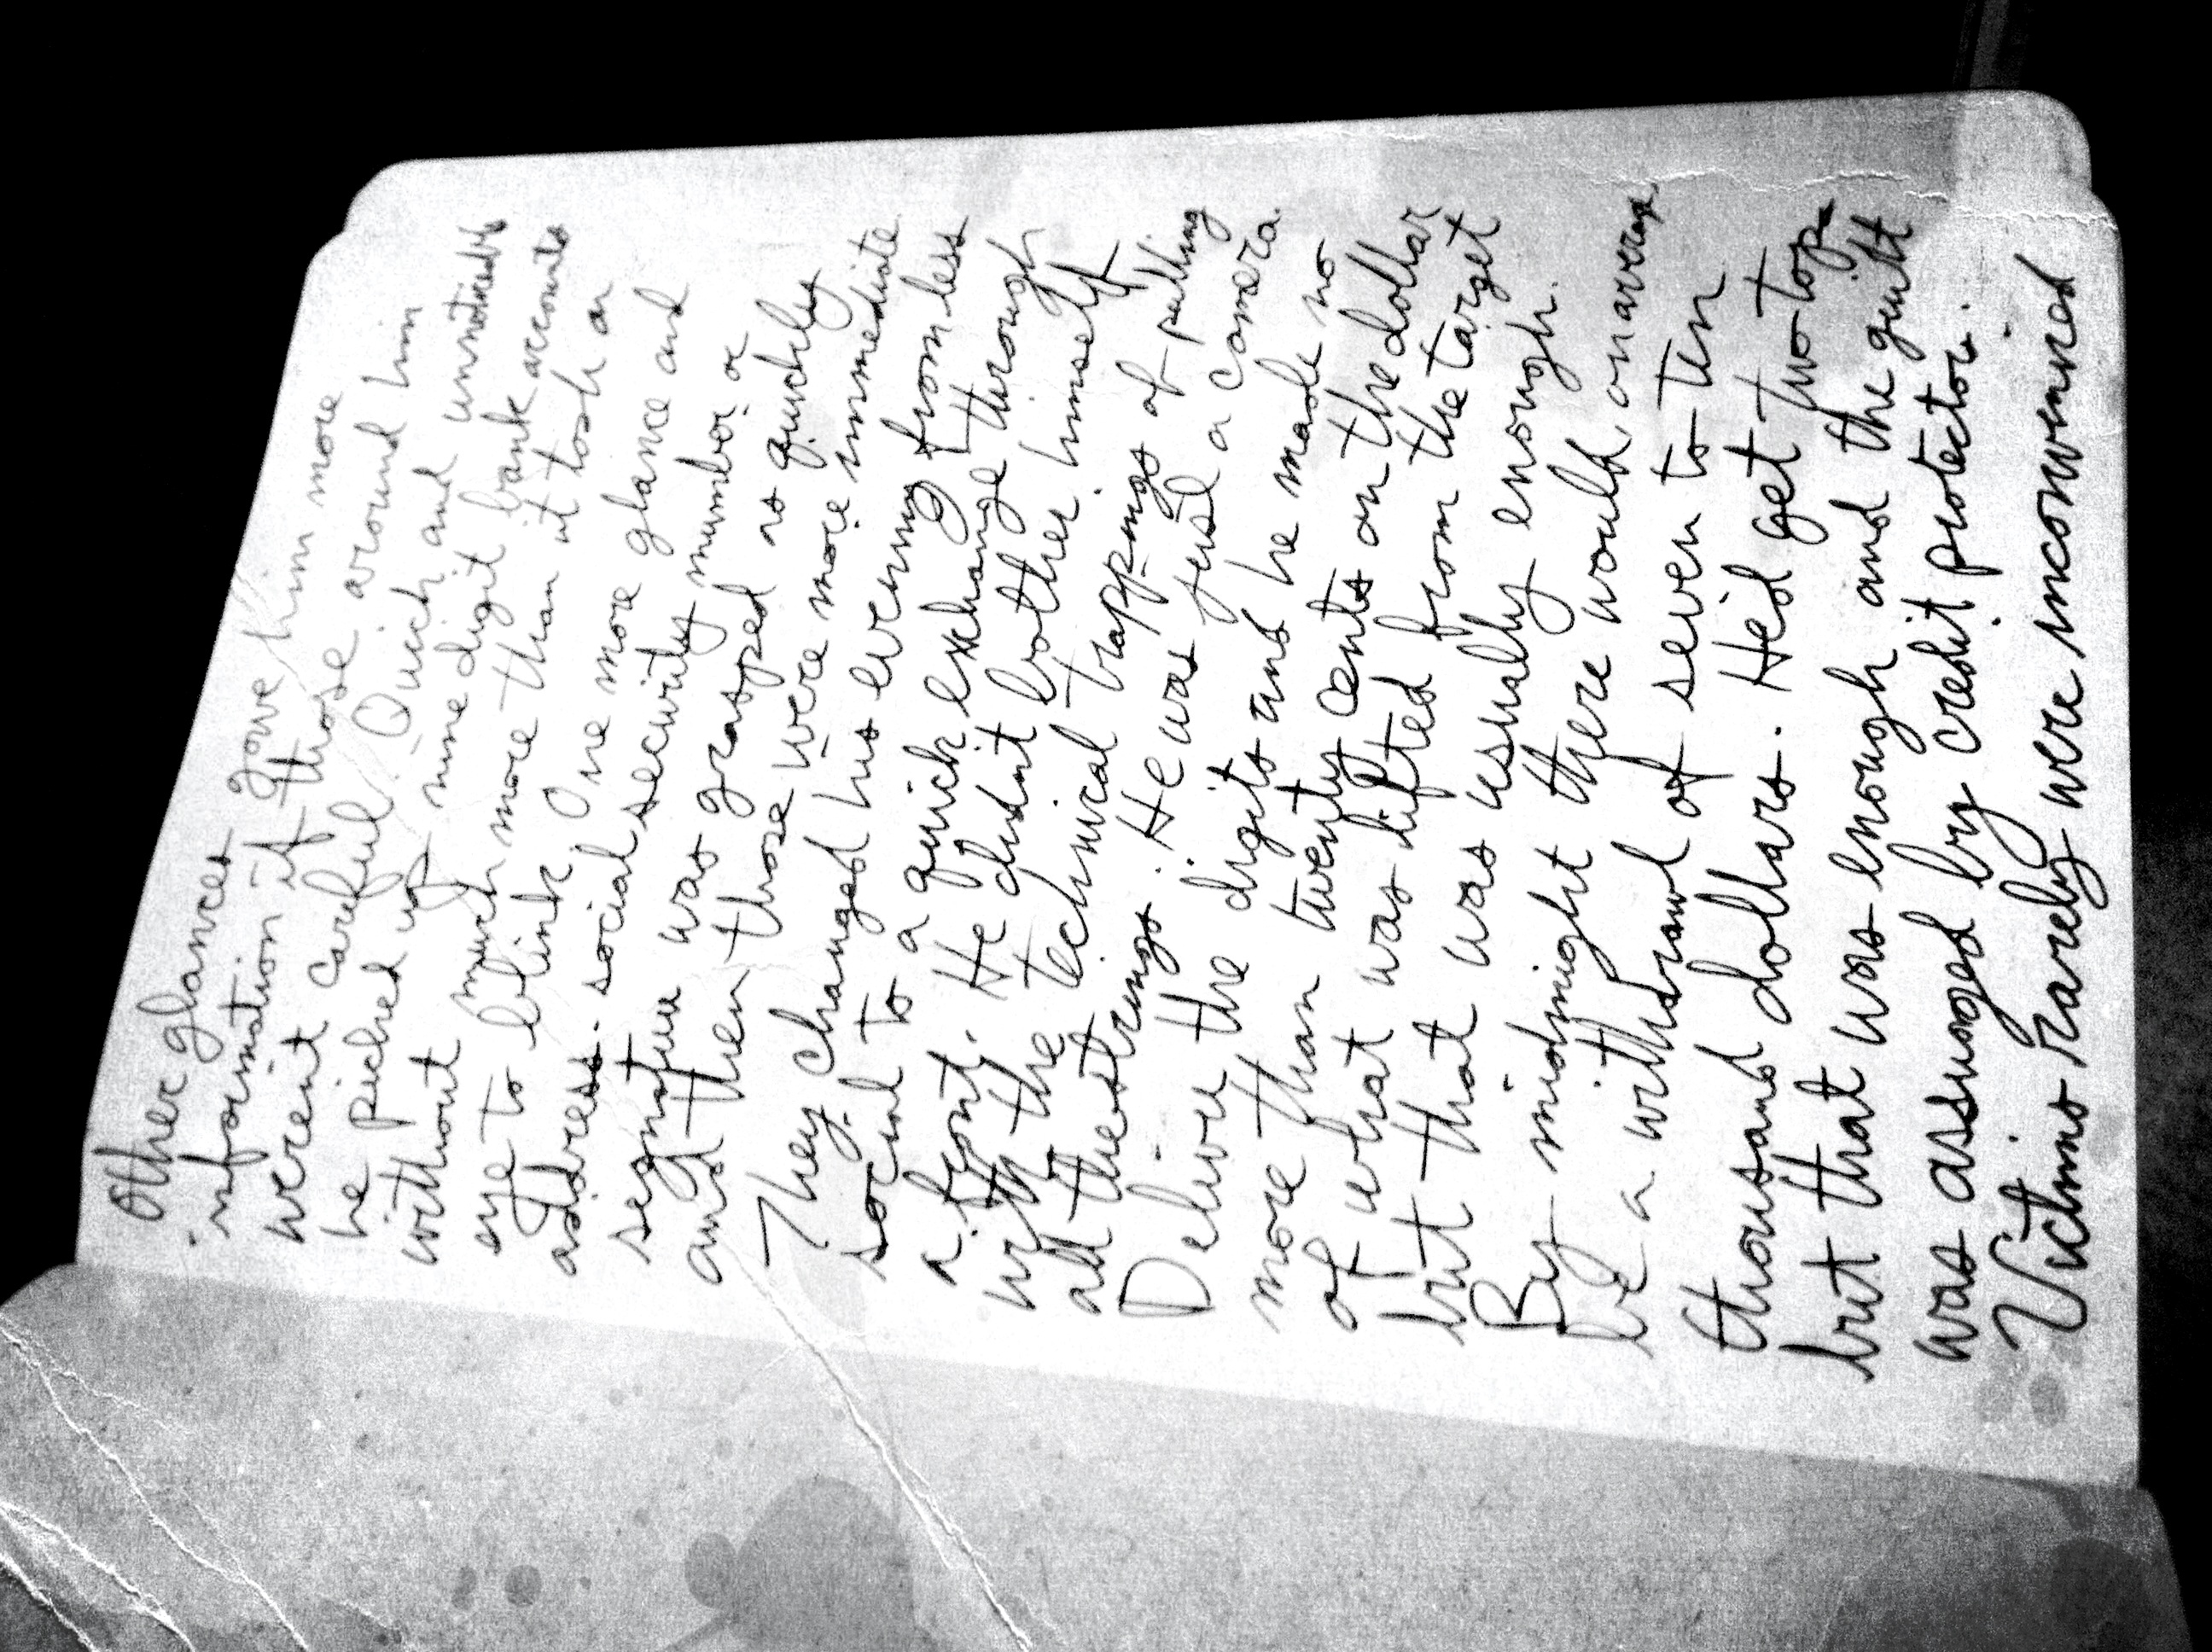 Other glances gave him more
information if those around him
weren't careful. Quick and unnoticed
he picked up nine digit bank accounts
without much more than it took an
eye to blink. One more glance and
address. social security number or
segnatuu was grasped as quickly
and then those were more immediate
They changed his evening from less
social to a quick exchange through
a front. He didn't bother himself
with the technical trappings of pulling
all the strings. He was just a camera.
Deliver the digits and he made no
more than twenty cents on the dollar
of what was lifted from the target
but that was usually enough.
By midnight there would on average
be a withdrawl of seven to ten
thousand dollars. He'd get two tops
but that was enough and the guilt
was assuaged by credit protector.
Victims rarely were inconvenienced